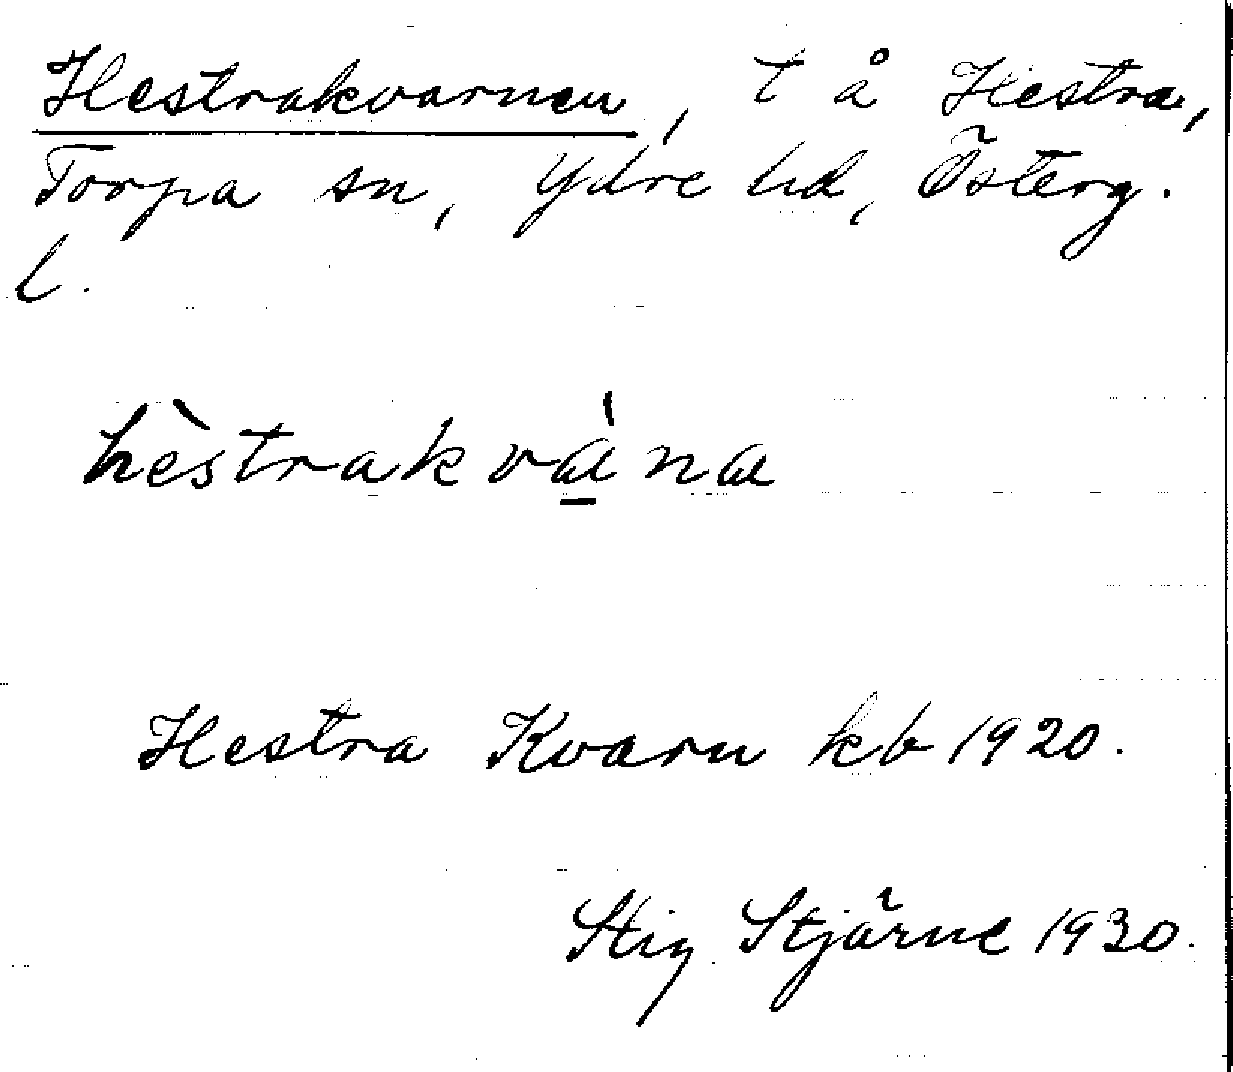 Hestrakvarnen, t å Hestra,
Torpa sn, Ydre hd, Österg.
l.
hèstrakvà̱na
Hestra Kvarn kb 1920.
Stig Stjärne 1930.